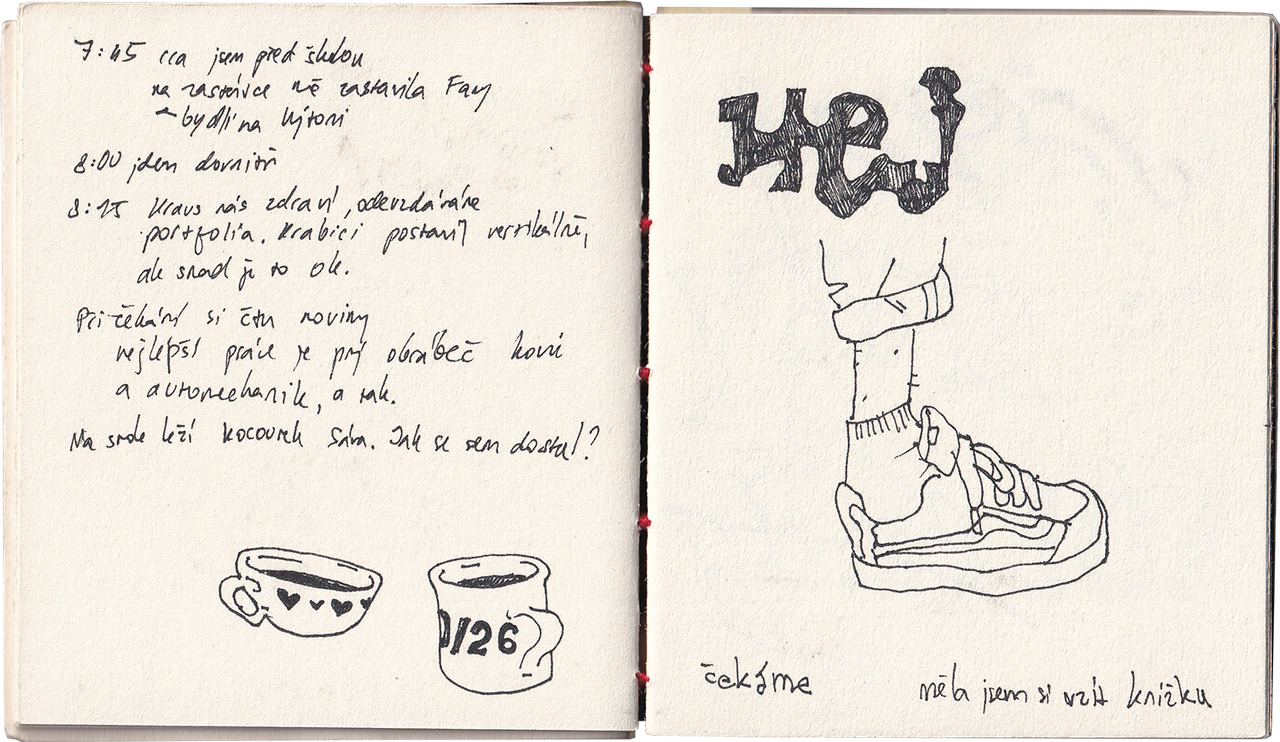 7:45 cca jsem před školou
na zastávce mě zastavila Fany
bydlí na Výtoni
8:00 jdem dovnitř
8:15 Kraus nás zdraví, odevzdáváme
portfolia. Krabici postavil vertikálně,
ale snad je to ok.
Při čekání si čtu noviny
nejlepší práce je prý obráběč kovů
a automechanik, a tak.
Na srdc leží kocourek Sára. Jak se sem dostal?
0/26
Hej
čekáme
měla jsem si vzít knížku